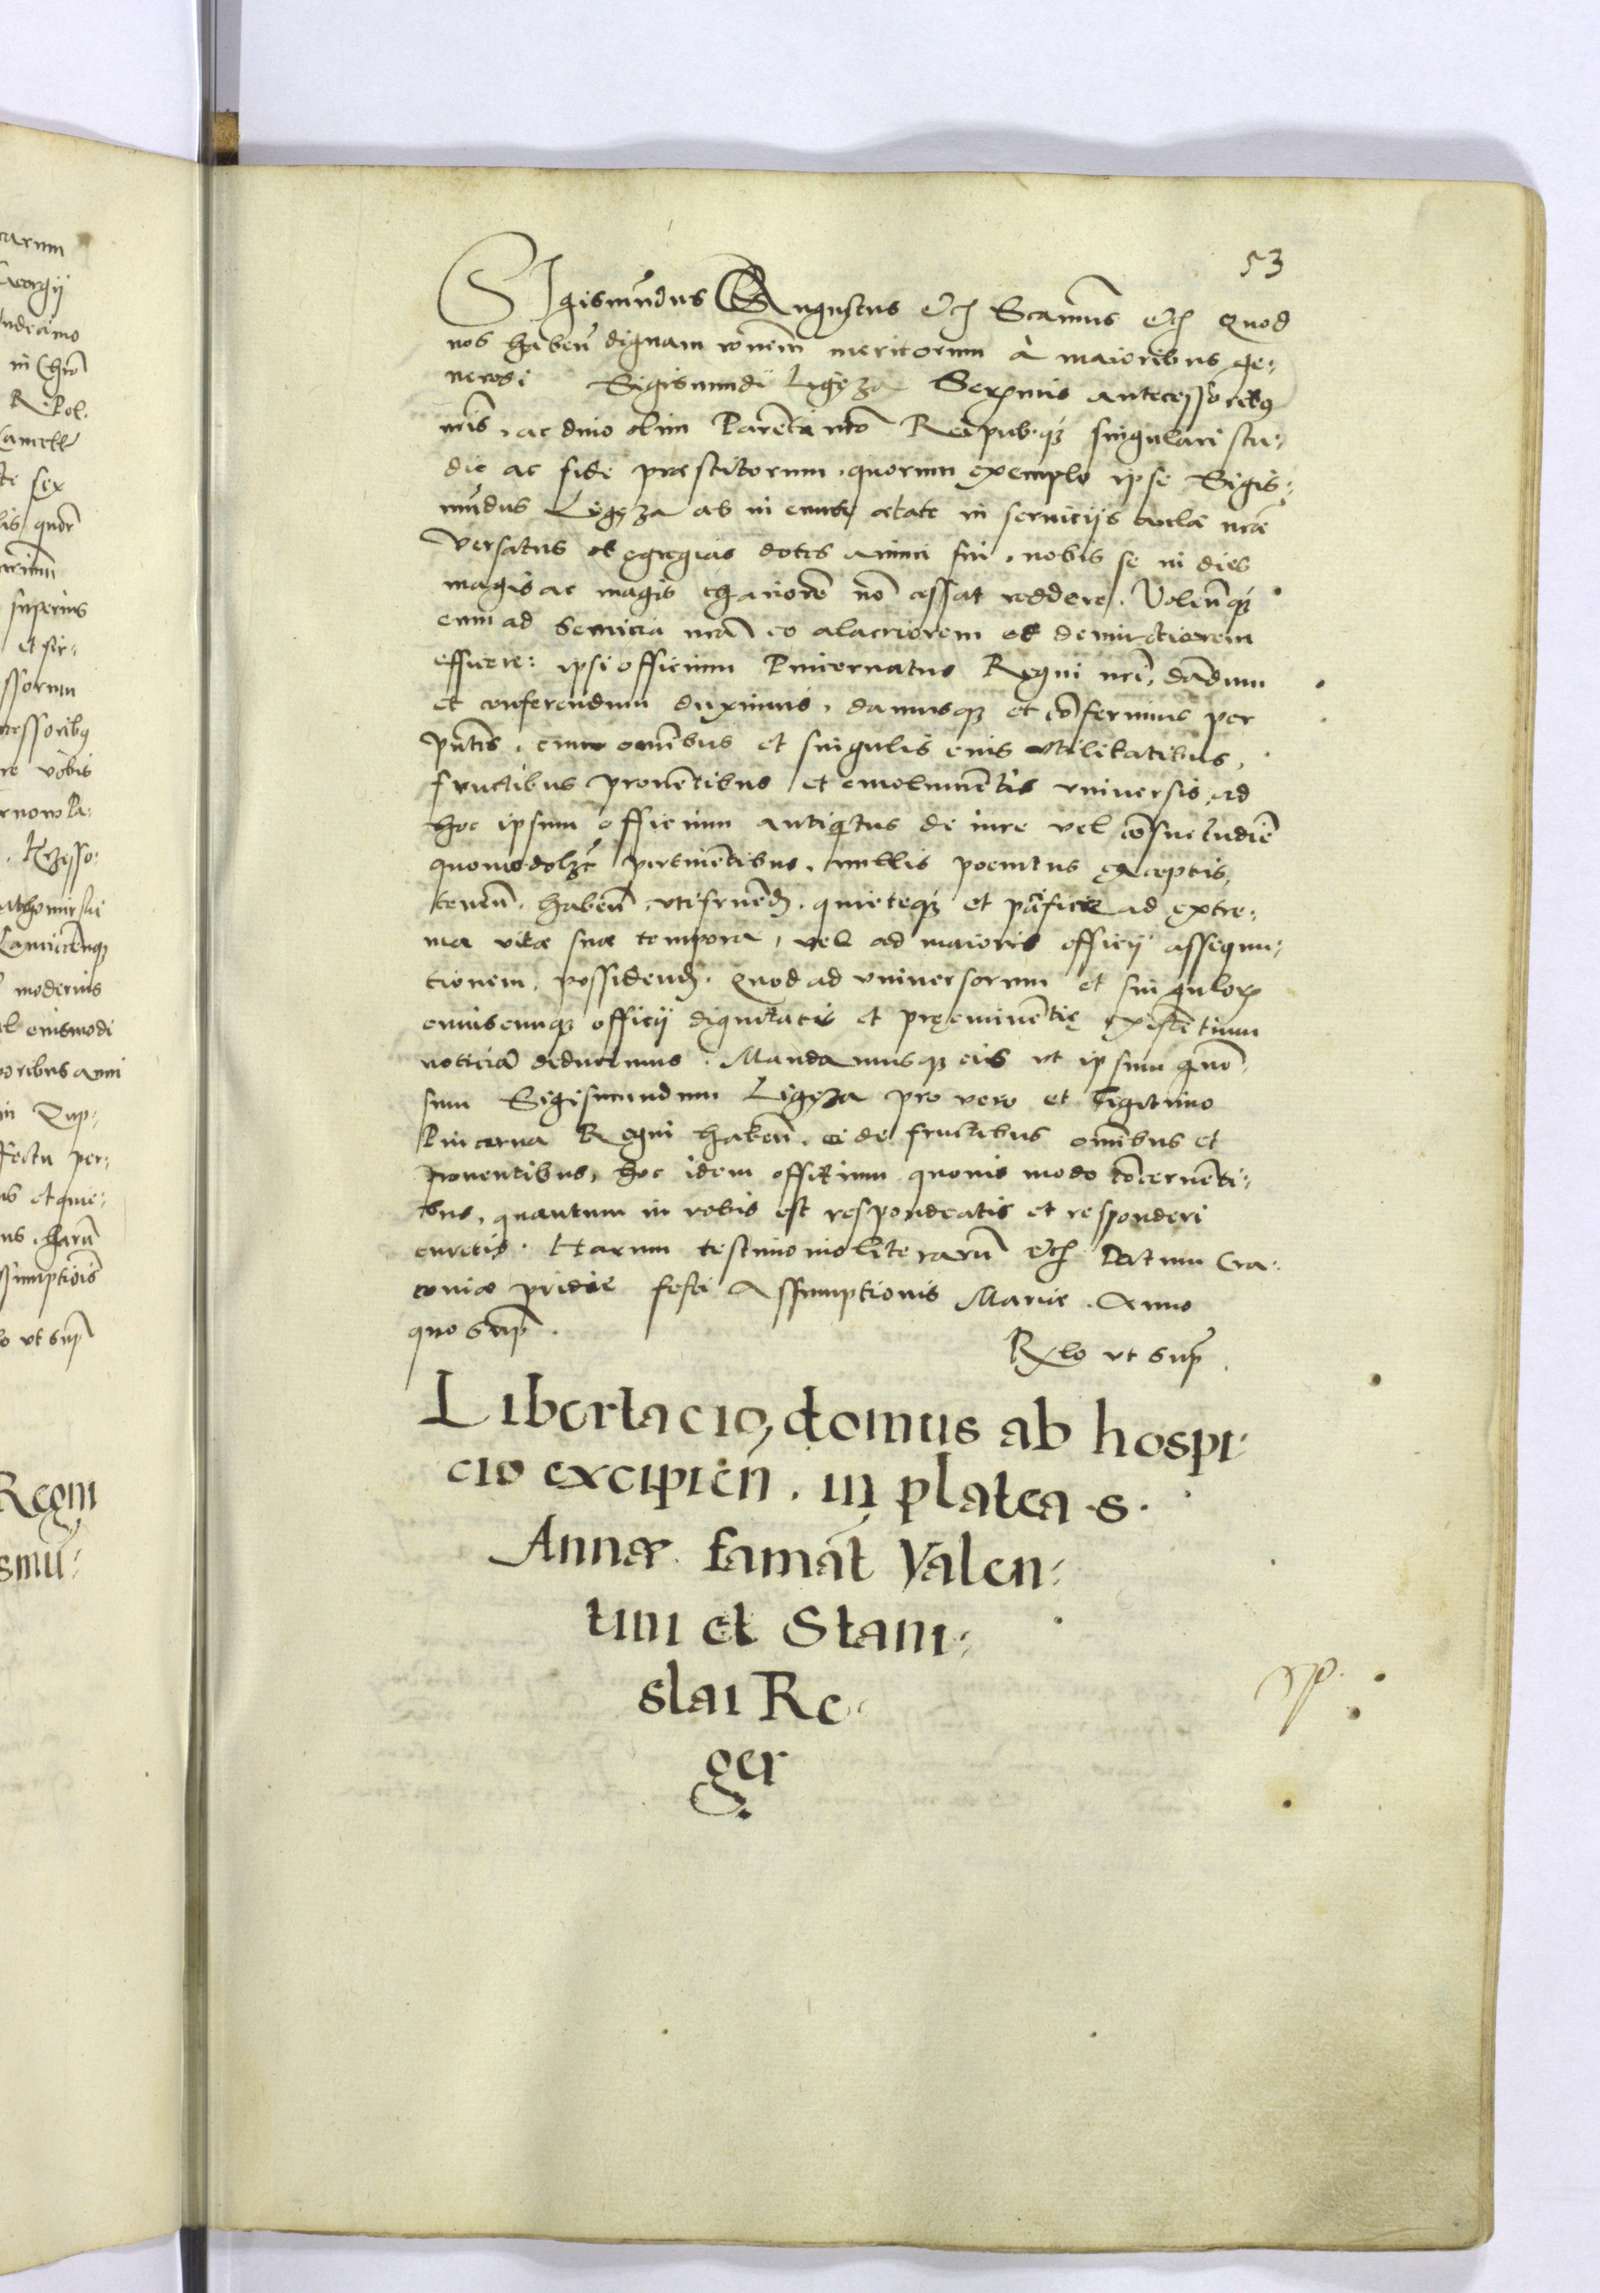 53
Sigismūndus Augustus Etc̄ Scamūs etc̄ Quod
nos habeñ dignam rōnem meritorum à maioribus ge:
nerosi Sigismundi Ligęza Serenis antecessoribꝯ
nr̄is, ac divo olim Parēti nrō Reipub. qꝫ singulari stu:
dio ac fide præstitorum, quorum exemplo ipse Sigis:
mūdus Ligęza ab in eunte ætate in seruicijs aulæ nr̄æ
versatus ob egregias dotes animi sui, nobis se in dies
magis ac magis chariorē nō cessat reddere. Volēn̄qꝫ
eum ad seruicia nr̄a eo alacriorem et deuinctiorem
efficere: ipsi officium Pincernatus Regni nr̄i, dādum
et conferendum duximus, damusqꝫ et cōferimus per
pn̄tes, cum om̄ibus et singulis eius vtilitatibus,
fructibus prouētibus et emolumētis vniuersis, ad
hoc ipsum officium antiqtus de iure vel cōsuetudie
quomodolꝫt pertinētibus, nullis poenitus exceptis,
teneñ. habeñ, vtifruēd. quieteqꝫ et pāfice ad extre:
ma vitæ suæ tempora, vel ad maioris officij assequu:
tionem, possidend. Quod ad vniuersorum et singulorꝫ
cuiuscunqꝫ officij dignitatis et pręeminētię existētium
noticiā deducimus. Mandamusqꝫ eis vt ipsum gnō:
sum Sigismundum Ligęza pro vero et legitimo
Pincerna Regni habeñ. ei de fructibus om̄ibus et
prouentibus, hoc idem officium quouis modo cōcernēti:
bus, quantum in vobis est respondeatis et responderi
curetis. Harum testimonio literarū Etc̄ Datum Cra:
couiæ pridie festi Assumptionis Mariæ. Anno
quo sup̄.
Rlo vt sup̄.
Libertacio, domus ab hospi:
cio excipieñ. in platea .s.
Annæ famat̄ Valen:
tini et Stani:
slai Re:
ger